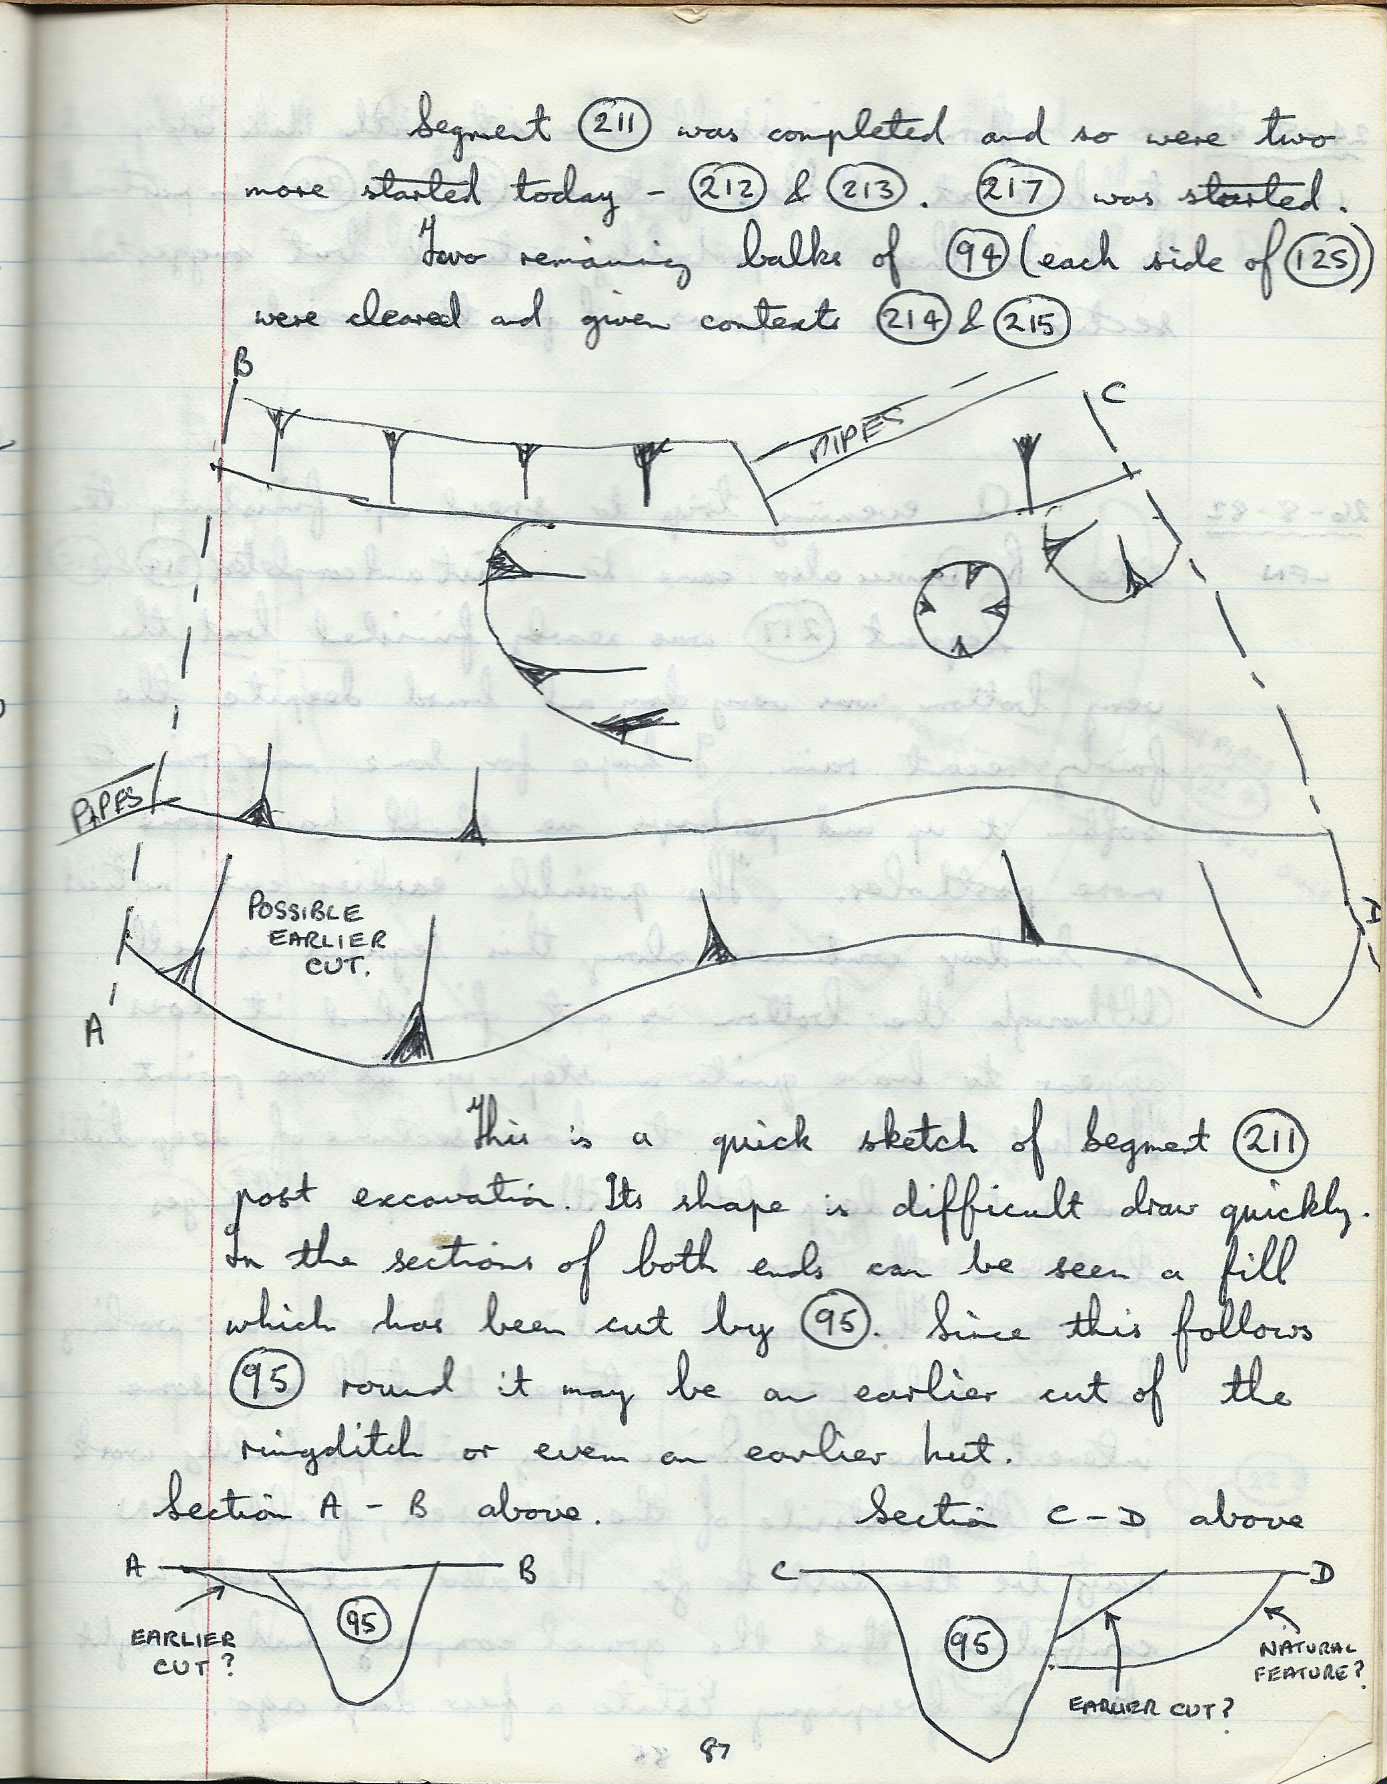 Segment (211) was completed and so were two
more started today - (212) & (213). (217) was started.
Two remaining balks of (94) (each side of (125))
were cleared and given contexts (214) & (215)
B
C
PIPES
PIPES
POSSIBLE
EARLIER
CUT.
A
This is a quick sketch of Segment (211)
post excavation. Its shape is difficult draw quickly.
In the sections of both ends can be seen a fill
which has been cut by (95). Since this follows
(95) round it may be an earlier cut of the
ringditch or even an earlier hut.
Section A - B above.
Section C - D above
A
B
(95)
EARLIER
CUT?
C
D
(95)
NATURAL
FEATURE?
EARLIER CUT?
87